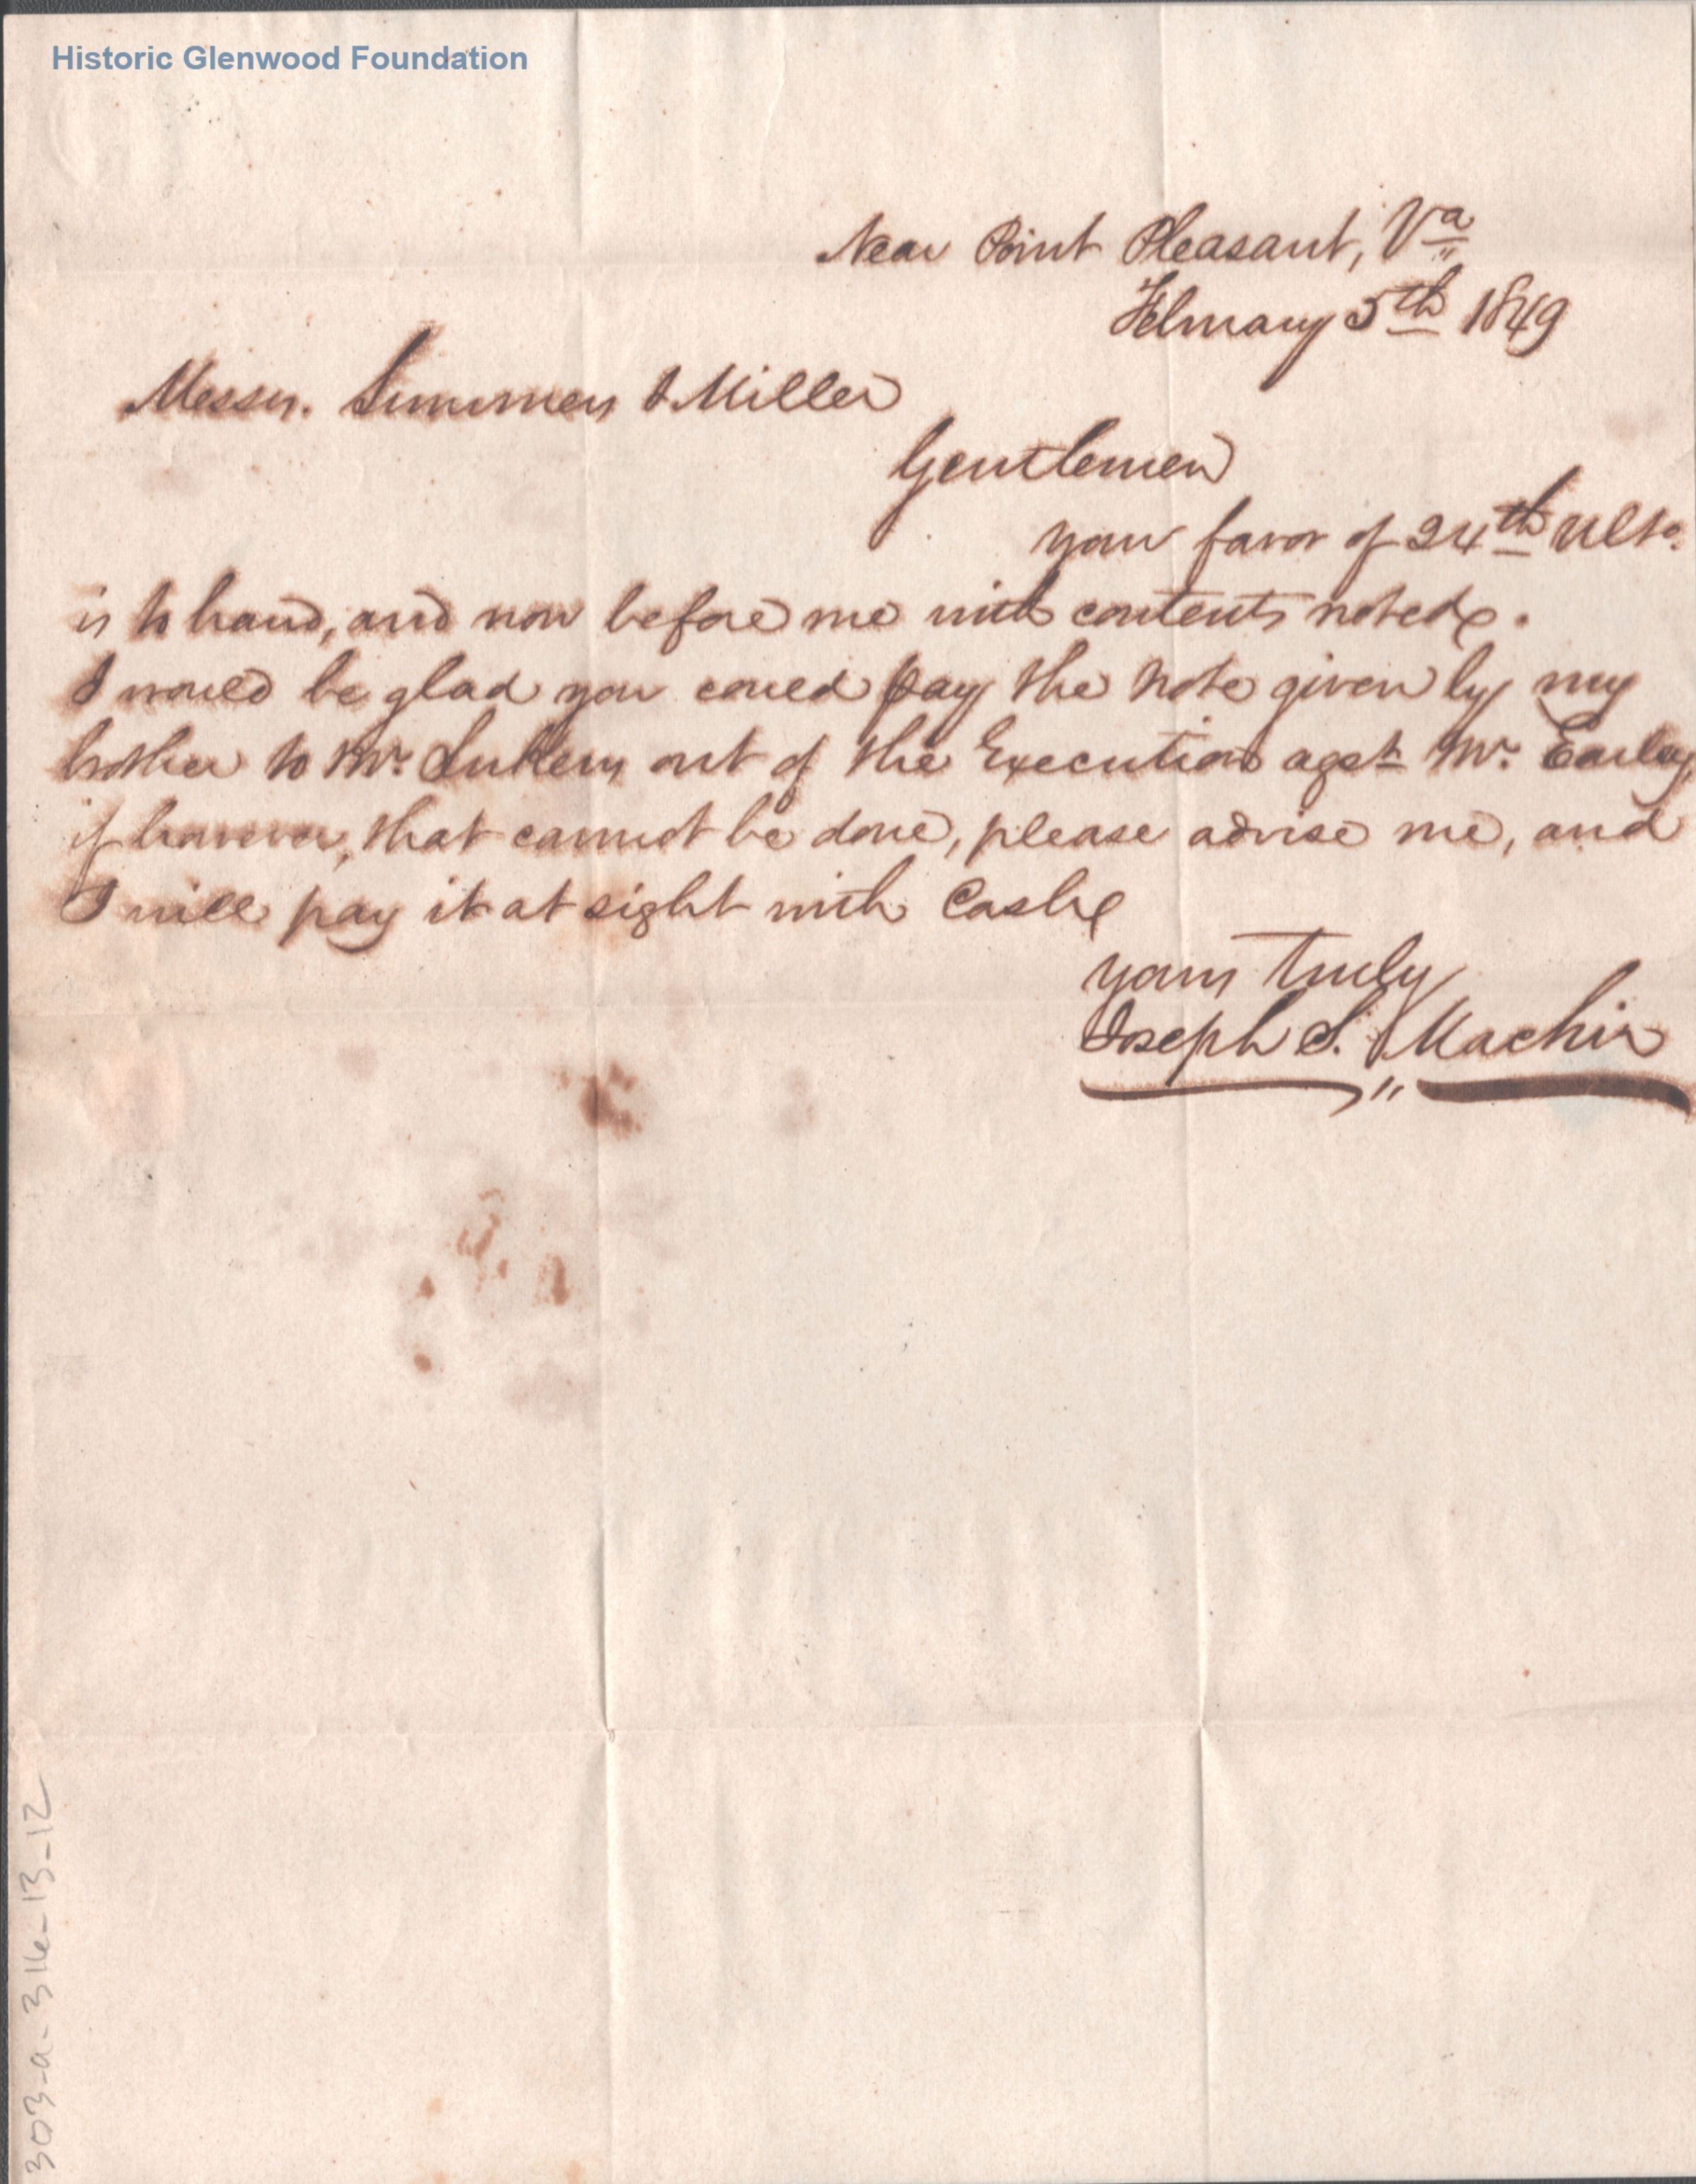 Historic Glenwood Foundation
Near Point Pleasant, Va
February 5th 1849
Messrs. Summers & Miller
Gentlemen
your favor of 24th Ulto.
is to hand, and now before me with contents noted.
I would be glad you could pay the note given by my
brother to Mr. out of the Execution agst Mr. Earley,
if however, that cannot be done, please advise me, and
I will pay it at sight with Cash
yours truly
Joseph S. Machir
303-a-316-13-12